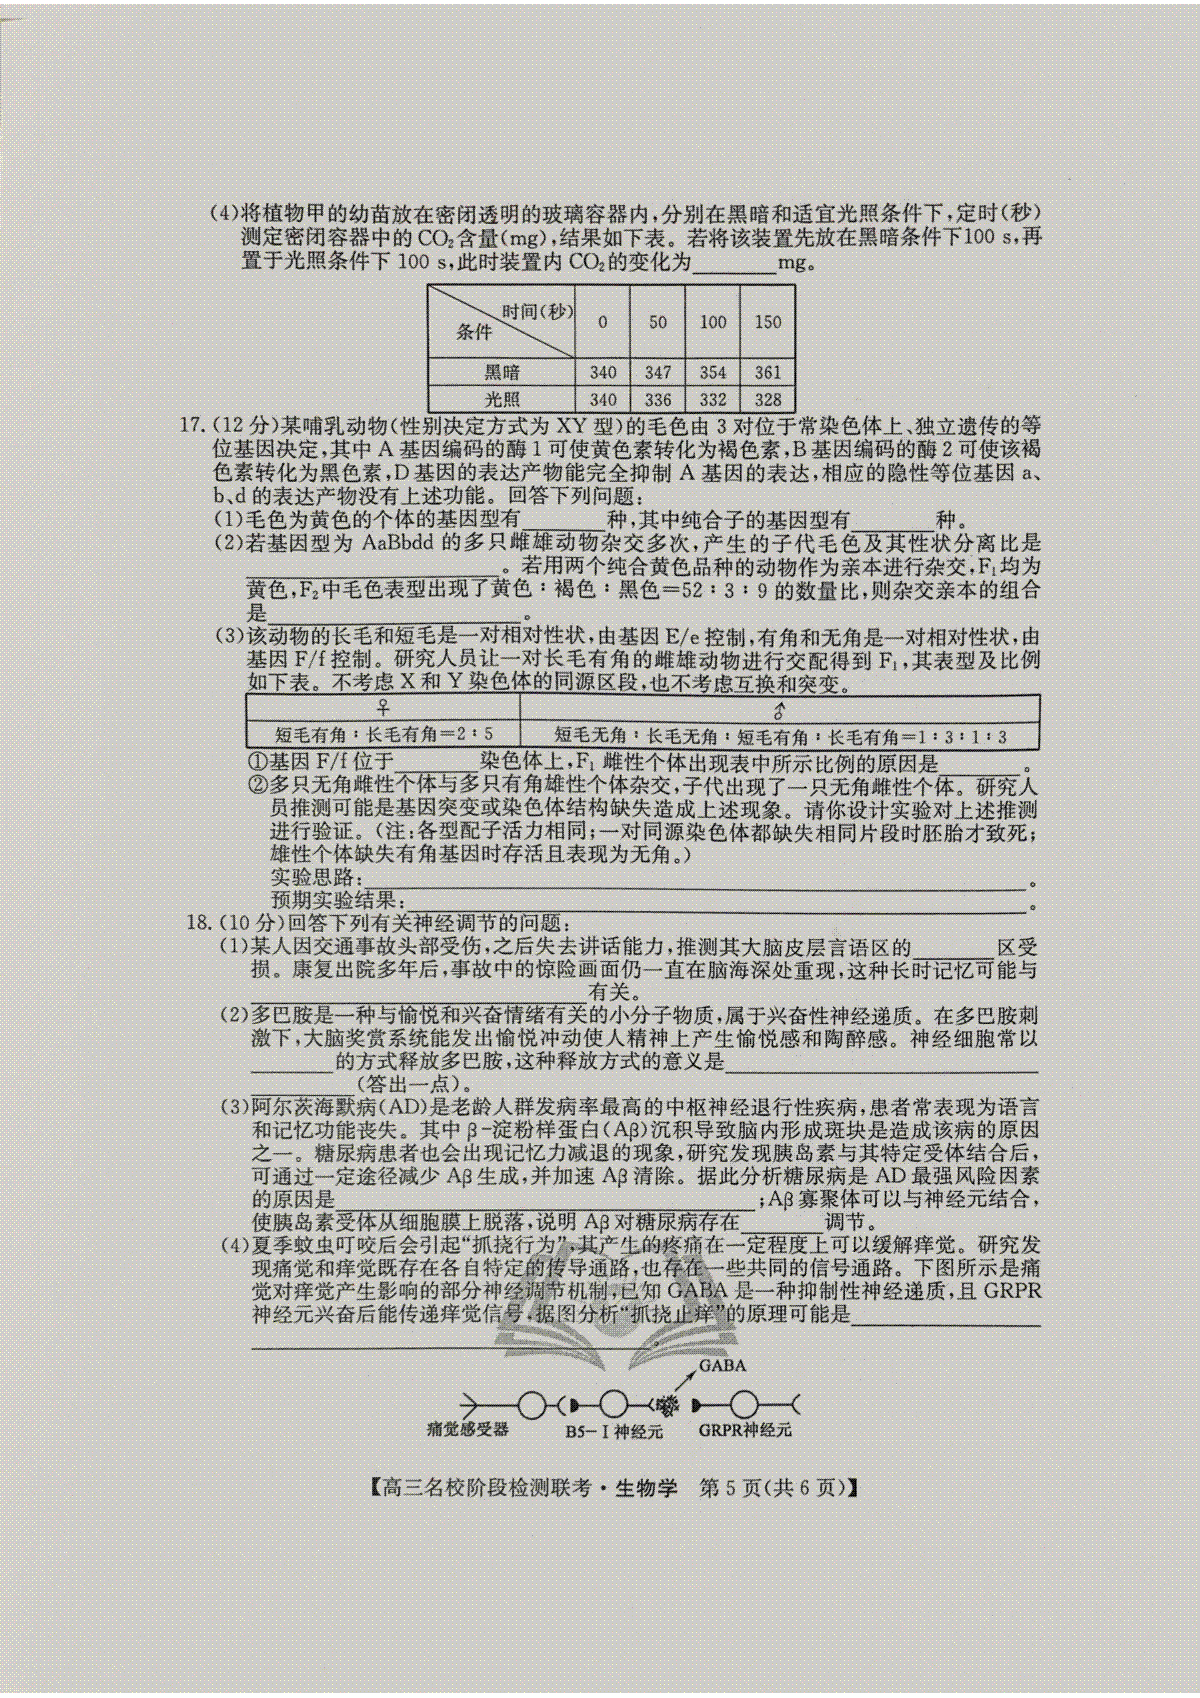 (4)将植物甲的幼苗放在密闭透明的玻璃容器内,分别在黑暗和适宜光照条件下,定时(秒)
测定密闭容器中的CO₂含量(mg),结果如下表。若将该装置先放在黑暗条件下100 s,再
置于光照条件下 100 s,此时装置内 CO₂的变化为________mg。
时间(秒) 0 50 100 150
条件
黑暗 340 347 354 361
光照 340 336 332 328
17.(12分)某哺乳动物(性别决定方式为 XY 型)的毛色由 3 对位于常染色体上、独立遗传的等
位基因决定,其中 A 基因编码的酶 1 可使黄色素转化为褐色素,B 基因编码的酶 2 可使该褐
色素转化为黑色素,D 基因的表达产物能完全抑制 A 基因的表达,相应的隐性等位基因 a、
b、d 的表达产物没有上述功能。回答下列问题:
(1)毛色为黄色的个体的基因型有________种,其中纯合子的基因型有________种。
(2)若基因型为 AaBbdd 的多只雌雄动物杂交多次,产生的子代毛色及其性状分离比是
________________________。若用两个纯合黄色品种的动物作为亲本进行杂交,F₁均为
黄色,F₂中毛色表型出现了黄色∶褐色∶黑色=52∶3∶9 的数量比,则杂交亲本的组合
是________________________。
(3)该动物的长毛和短毛是一对相对性状,由基因 E/e 控制,有角和无角是一对相对性状,由
基因 F/f 控制。研究人员让一对长毛有角的雌雄动物进行交配得到 F₁,其表型及比例
如下表。不考虑 X 和 Y 染色体的同源区段,也不考虑互换和突变。
♀ ♂
短毛有角∶长毛有角=2∶5 短毛无角∶长毛无角∶短毛有角∶长毛有角=1∶3∶1∶3
①基因 F/f 位于________染色体上,F₁ 雌性个体出现表中所示比例的原因是________。
②多只无角雌性个体与多只有角雄性个体杂交,子代出现了一只无角雌性个体。研究人
员推测可能是基因突变或染色体结构缺失造成上述现象。请你设计实验对上述推测
进行验证。(注:各型配子活力相同;一对同源染色体都缺失相同片段时胚胎才致死;
雄性个体缺失有角基因时存活且表现为无角。)
实验思路:________________________________。
预期实验结果:________________________________。
18.(10分)回答下列有关神经调节的问题:
(1)某人因交通事故头部受伤,之后失去讲话能力,推测其大脑皮层言语区的________区受
损。康复出院多年后,事故中的惊险画面仍一直在脑海深处重现,这种长时记忆可能与
________________________有关。
(2)多巴胺是一种与愉悦和兴奋情绪有关的小分子物质,属于兴奋性神经递质。在多巴胺刺
激下,大脑奖赏系统能发出愉悦冲动使人精神上产生愉悦感和陶醉感。神经细胞常以
________的方式释放多巴胺,这种释放方式的意义是________________________
________(答出一点)。
(3)阿尔茨海默病(AD)是老龄人群发病率最高的中枢神经退行性疾病,患者常表现为语言
和记忆功能丧失。其中 β-淀粉样蛋白(Aβ)沉积导致脑内形成斑块是造成该病的原因
之一。糖尿病患者也会出现记忆力减退的现象,研究发现胰岛素与其特定受体结合后,
可通过一定途径减少 Aβ 生成,并加速 Aβ 清除。据此分析糖尿病是 AD 最强风险因素
的原因是________________________________;Aβ寡聚体可以与神经元结合,
使胰岛素受体从细胞膜上脱落,说明 Aβ 对糖尿病存在________调节。
(4)夏季蚊虫叮咬后会引起“抓挠行为”,其产生的疼痛在一定程度上可以缓解痒觉。研究发
现痛觉和痒觉既存在各自特定的传导通路,也存在一些共同的信号通路。下图所示是痛
觉对痒觉产生影响的部分神经调节机制,已知 GABA 是一种抑制性神经递质,且 GRPR
神经元兴奋后能传递痒觉信号,据图分析“抓挠止痒”的原理可能是________________
________________________________。
GABA
痛觉感受器 B5-Ⅰ神经元 GRPR神经元
【高三名校阶段检测联考·生物学 第 5 页(共 6 页)】